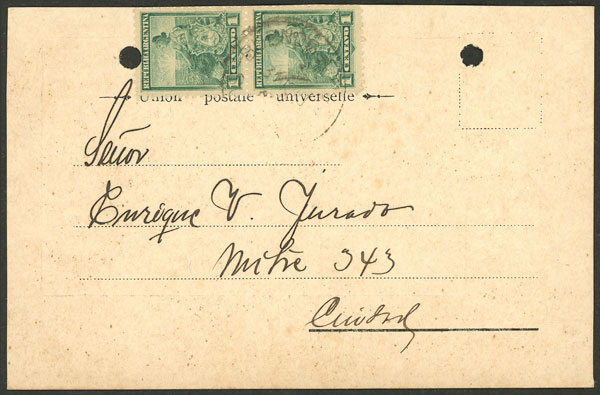 REPUBLICA ARGENTINA 1 CENTAVO
REPUBLICA ARGENTINA 1 CENTAVO
Union postale universelle
Señor
Enrique V. Jurado
Mitre 343
Ciudad